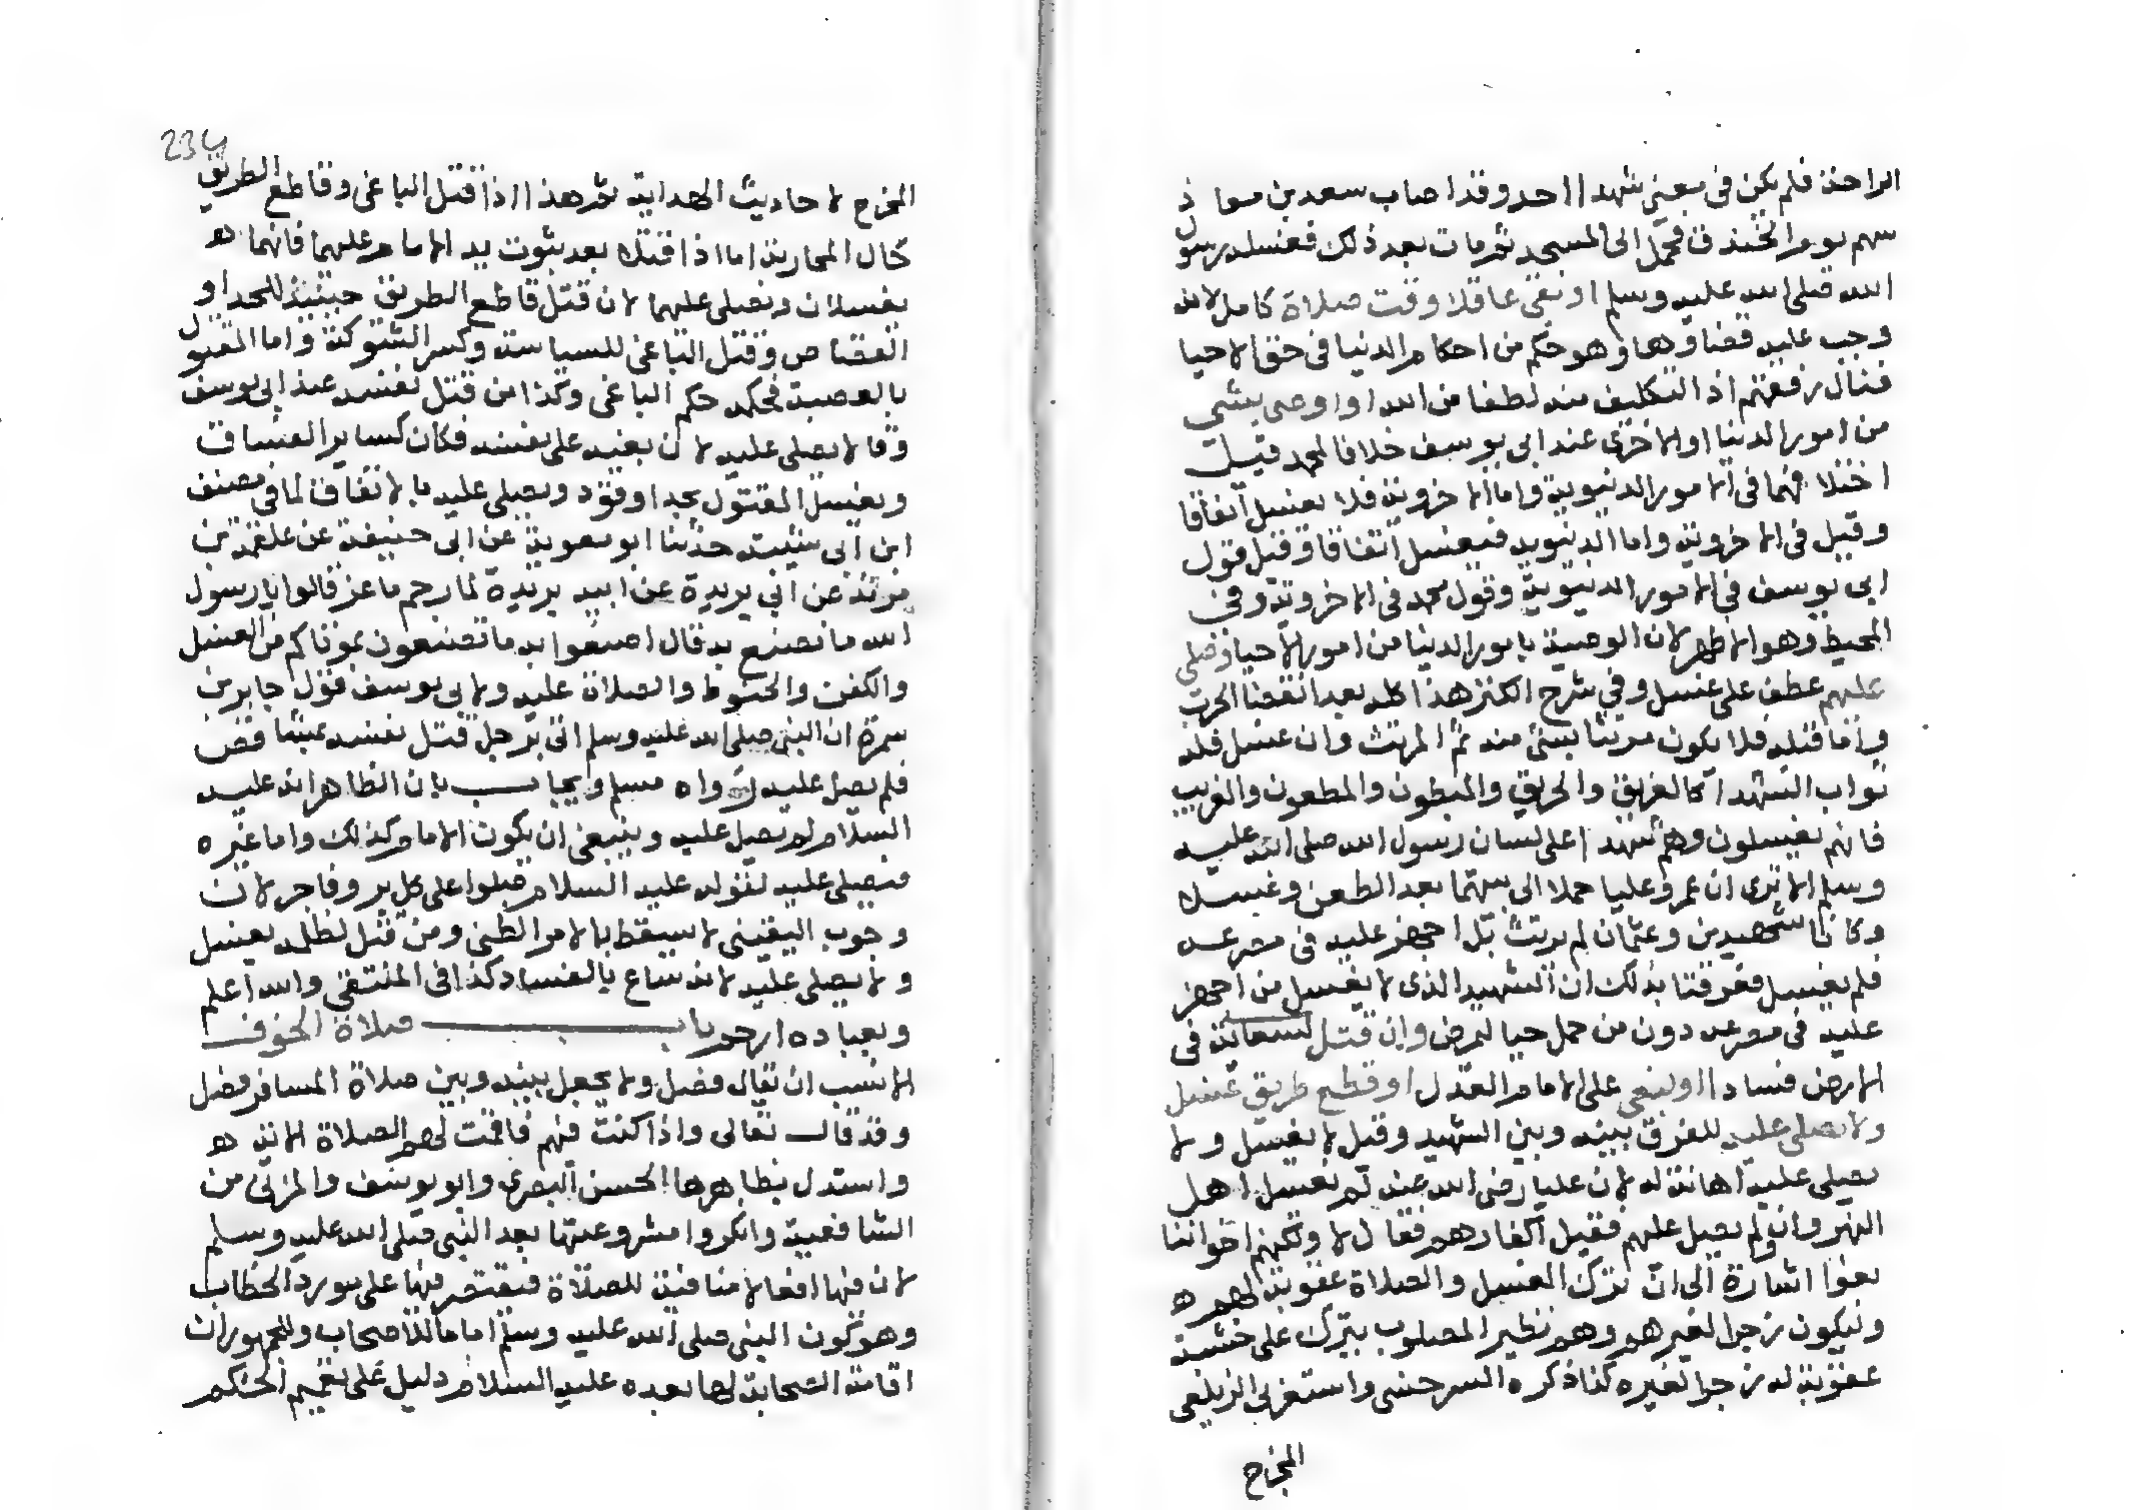 الراحة فلم يكن في معنى شهدا احد وقد اصاب سعد بن معاذ
سهم يوم الخندق فحمل الى المسجد ثم مات بعد ذلك فغسله رسول
الله صلى الله عليه وسلم او بقي عاقلا وقت صلاة كامل لانه
وجب عليه قضاوها وهو حكم من احكام الدنيا في حق الاحيا
فنال رفقتهم اذ التكليف منه لطفا من الله او اوصى بشي
من امور الدنيا او الاخرى عند ابي يوسف خلافا لمحمد قيل
اختلافهما في الامور الدنيوية واما الاخروية فلا يغسل اتفاقا
وقيل في الاخروية واما الدنيويه فيغسل اتفاقا وقيل قول
ابي يوسف في الامور الدنيوية وقول محمد في الاخروية وفي
المحيط وهو الاظهر لان الوصية بامور الدنيا من امور الاحيا وصلي
عليهم عطف على غسل وفي شرح الكنز هذا كله بعد انقضا الحرب
واما قبله فلا يكون مرتثا بشئ منه ثم المرتث وان غسل فله
ثواب الشهدا كالغريق والحريق والمبطون والمطعون والغريب
فانهم يغسلون وهم شهدا على لسان رسول الله صلى الله عليه
وسلم الا ترى ان عمر وعليا حملا الى بيتهما بعد الطعن وغسلا
وكانا شهيدين وعثمان لم يرتث بل اجهز عليه في مصرعه
فلم يغسل فعرفنا بذلك ان الشهيد الذي لا يغسل من اجهز
عليه في مصرعه دون من حمل حيا لمرض وان قتل لسعايته في
الارض فسادا او لبغى على الامام العدل او قطع طريق غسل
ولا يصلى عليه للفرق بينه وبين الشهيد وقيل لا يغسل ولا
يصلى عليه اهانة له لان عليا رضي الله عنه لم يغسل اهل
النهروان ولم يصل عليهم فقيل اكفار هم فقال لا ولكنهم اخواننا
بغوا اشارة الى ان ترك الغسل والصلاة عقوبة لهم
وليكون زجرا لغيرهم وهم نظير المصلوب يترك على خشبته
عقوبة له زجرا لغيره كذا ذكره السرخسي واستغربي الزيلعي
المخرج
234
المخرج لاحاديث الهداية ثم هذا اذا قتل الباغي وقاطع الطريق
حال المحاربة اما اذا قتلا بعد ثبوت يد الامام عليهما فانهما
يغسلان ويصلى عليهما لان قتل قاطع الطريق حينئذ للحد او
القصاص وقتل الباغي للسياسة وكسر الشوكة واما المقتول
بالعصبية فحكمه حكم الباغي وكذا من قتل نفسه عند ابي يوسف
وقالا يصلى عليه لان بغيه على نفسه فكان كساير الفساق
ويغسل المقتول بحد او قود ويصلى عليه بالاتفاق لما في مصنف
ابن ابي شيبة حدثنا ابو معوية عن ابي حنيفة عن علقمة بن
مرثد عن ابي بريدة عن ابيه بريدة لما رجم ماعز قالوا يا رسول
الله ما نصنع به قال اصنعوا به ما تصنعون بموتاكم من الغسل
والكفن والحنوط والصلاة عليه ولابي يوسف قول جابر بن
سمرة ان النبي صلى الله عليه وسلم اتى برجل قتل نفسه بمشاقص
فلم يصل عليه رواه مسلم ويجاب بان الظاهر انه عليه
السلام لم يصل عليه وينبغي ان يكون الامام كذلك واما غيره
فيصلى عليه لقوله عليه السلام صلوا على كل بر وفاجر لان
وجوب اليقيني لا يسقط بالامر الظني ومن قتل لظلمه يغسل
ولا يصلى عليه لانه ساع بالفساد كذا في المنتقى والله اعلم
وبعباده ارحم باب صلاة الخوف
الانسب ان يقال فصل ولا يجعل بينه وبين صلاة المسافر فصل
وقد قال تعالى واذا كنت فيهم فاقمت لهم الصلاة الاية
واستدل بظاهرها الحسن البصري وابو يوسف والمزني من
الشافعية وانكروا مشروعيتها بعد النبي صلى الله عليه وسلم
لان فيها افعالا منافية للصلاة فيقتصر فيها على مورد الخطاب
وهو كون النبي صلى الله عليه وسلم اماما للاصحاب وللجمهور ان
اقامة الصحابة لها بعده عليه السلام دليل على تعميم الحكم